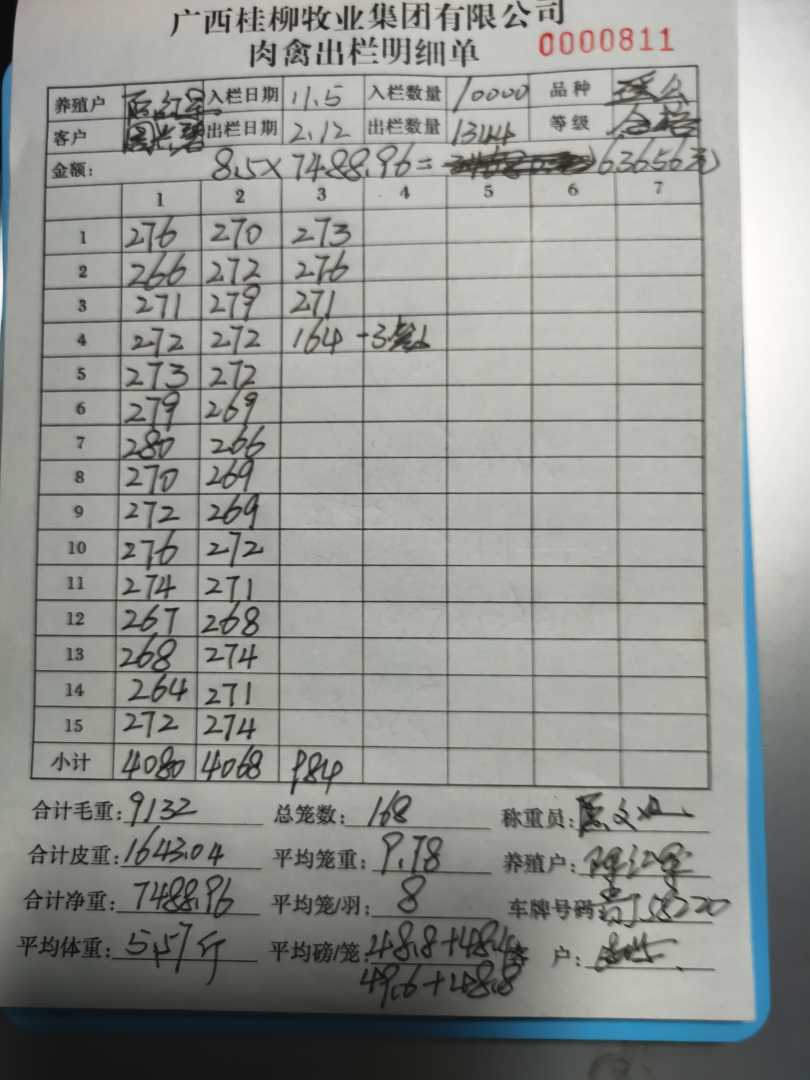 广西桂柳牧业集团有限公司
肉禽出栏明细单 0000811
养殖户 入栏日期 11.5 入栏数量 10000 品种
客户 出栏日期 2.12 出栏数量 1344 等级 合格
金额: 8.5×7488.96= 63656元
1 2 3 4 5 6 7
1 276 270 273
2 266 272 276
3 271 279 271
4 272 272 164 -3
5 273 272
6 279 269
7 280 266
8 270 269
9 272 269
10 276 272
11 274 271
12 267 268
13 268 274
14 264 271
15 272 274
小计 4080 4068 984
合计毛重: 9132 总笼数: 168 称重员:
合计皮重: 1643.04 平均笼重: 9.78 养殖户:
合计净重: 7488.96 平均笼/羽: 8 车牌号码 58220
平均体重: 5.57斤 平均磅/笼: 48.8+48.4 客户:
49.6+48.8